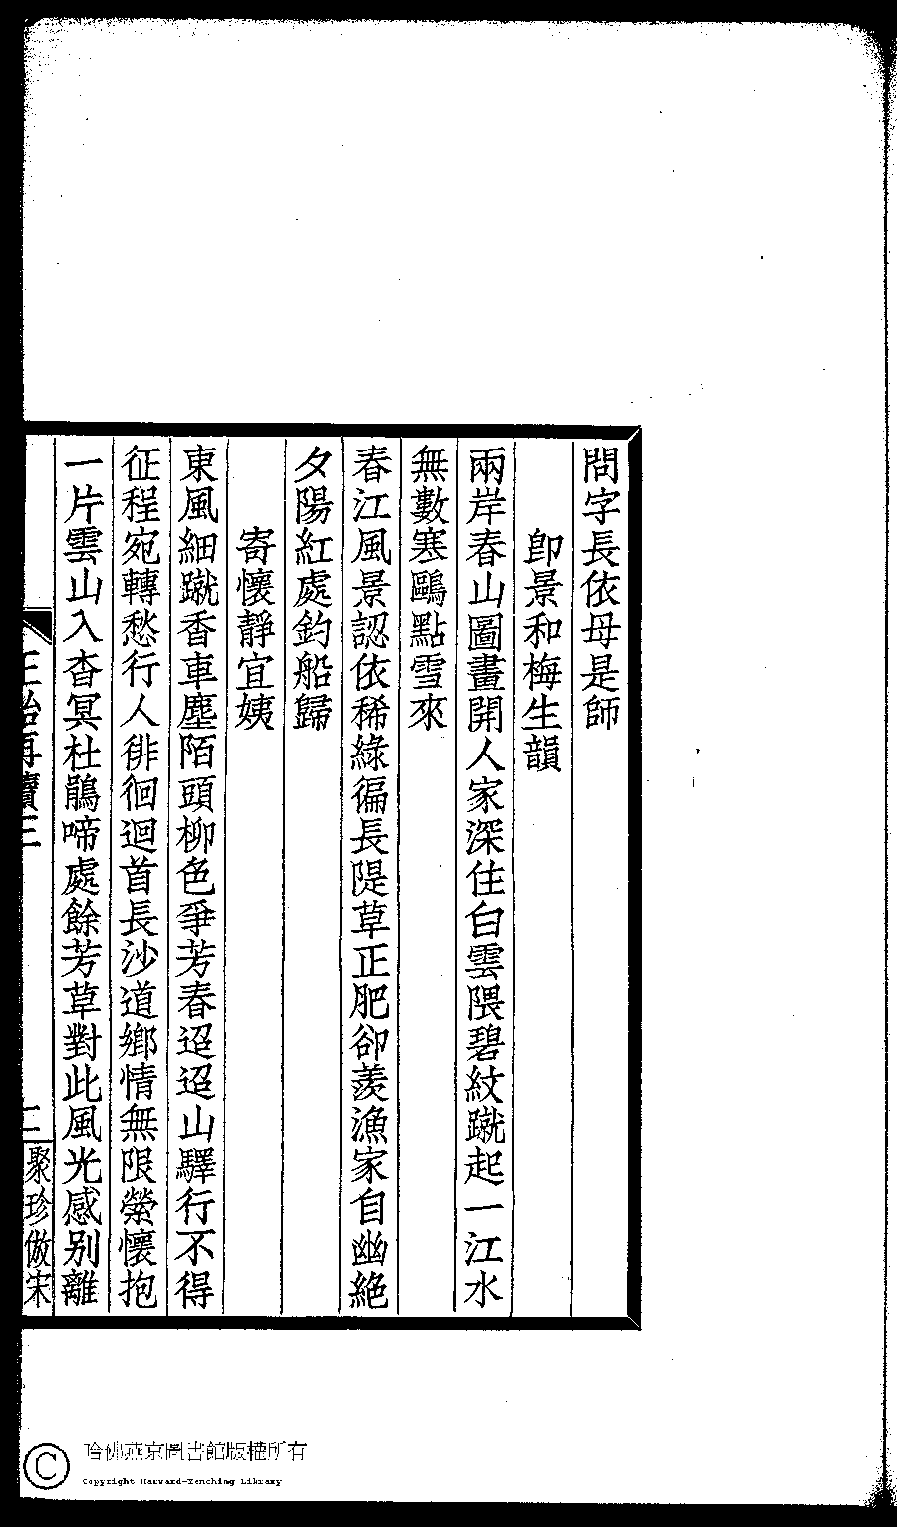 問字長依母是師
卽景和梅生韻
兩岸春山圖畫開人家深住白雲隈碧紋蹴起一江水
無數寒鷗點雪來
春江風景認依稀綠徧長隄草正肥卻羨漁家自幽絶
夕陽紅處釣船歸
寄懷靜宜姨
東風細蹴香車塵陌頭柳色爭芳春迢迢山驛行不得
征程宛轉愁行人徘徊迴首長沙道鄉情無限縈懷抱
一片雲山入杳冥杜鵑啼處餘芳草對此風光感别離
再續三
二
聚珍倣宋
哈佛燕京圖書館版權所有
Copyright Harvard-Yenching Library